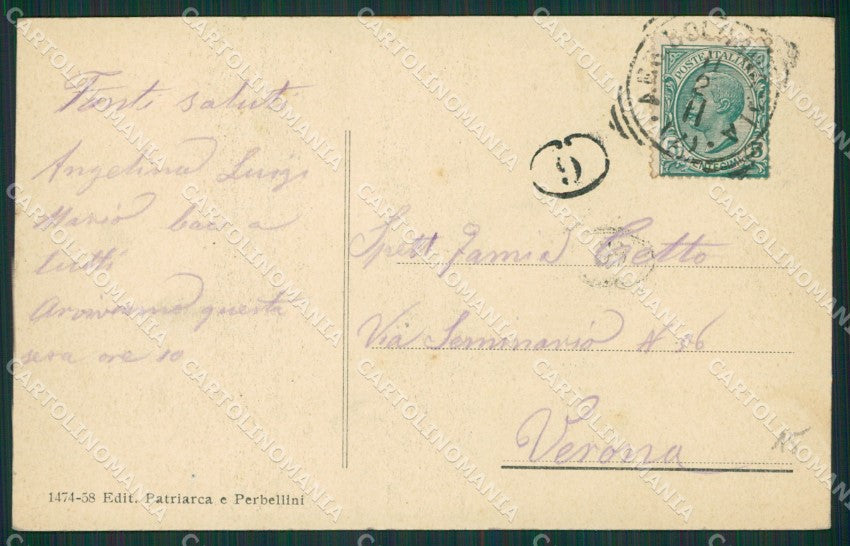 Tanti saluti
Angelina Luigi
Mario baci a
tutti
Arriviamo questa
sera ore 10
1474-38 Edit. Patriarca e Perbellini
POSTE ITALIANE
9
Spett Famia Cetto
Via Seminario N 36
Verona
CARTOLINOMANIA